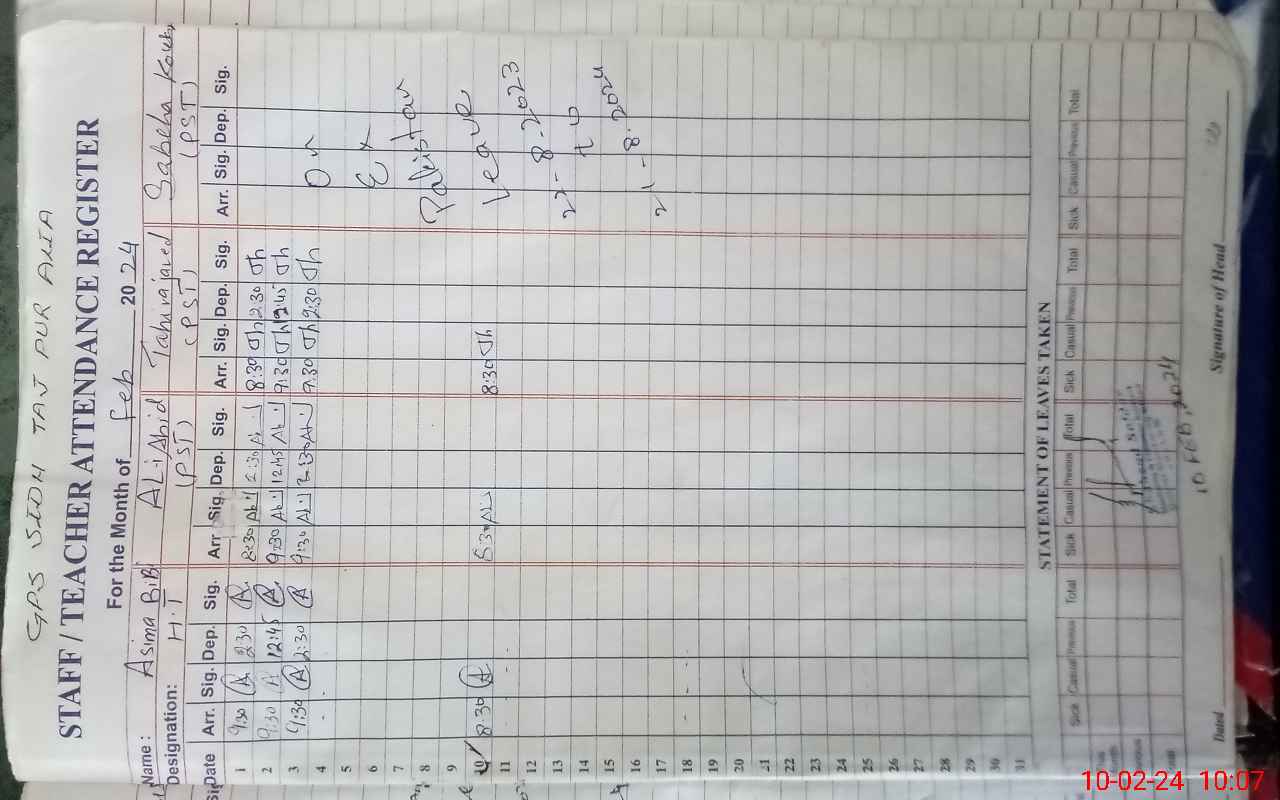 GPS SIDH TAJ PUR ALIA
STAFF / TEACHER ATTENDANCE REGISTER
For the Month of Feb 20 24
Name: Asima BiBi ALi Abid Tahirajaved Sabeha
Designation: H.T (PST) (PST) (PST)
Date Arr. Sig. Dep. Sig. Arr Sig. Dep. Sig. Arr. Sig. Dep. Sig. Arr. Sig. Dep. Sig.
1 9:30 A 2:30 A 8:30 2:30 8:30 Th 2:30 Th
2 9:30 A 12:45 A 9:30 12:45 9:30 Th 12:45 Th
3 9:30 A 2:30 A 9:30 2:30 9:30 Th 2:30 Th
4 On
5
6 Ex
7
8 Pakistan
9
10 8:30 A 8:30 8:30 Th Leave
11
12
13 22-8-2023
14 to
15
16
17 21-8-2024
18
19
20
21
22
23
24
25
26
27
28
29
30
31
STATEMENT OF LEAVES TAKEN
Sick Casual Previous Total Sick Casual Previous Total Sick Casual Previous Total Sick Casual Previous Total
10 FEB, 2024
Dated Signature of Head
10-02-24 10:07